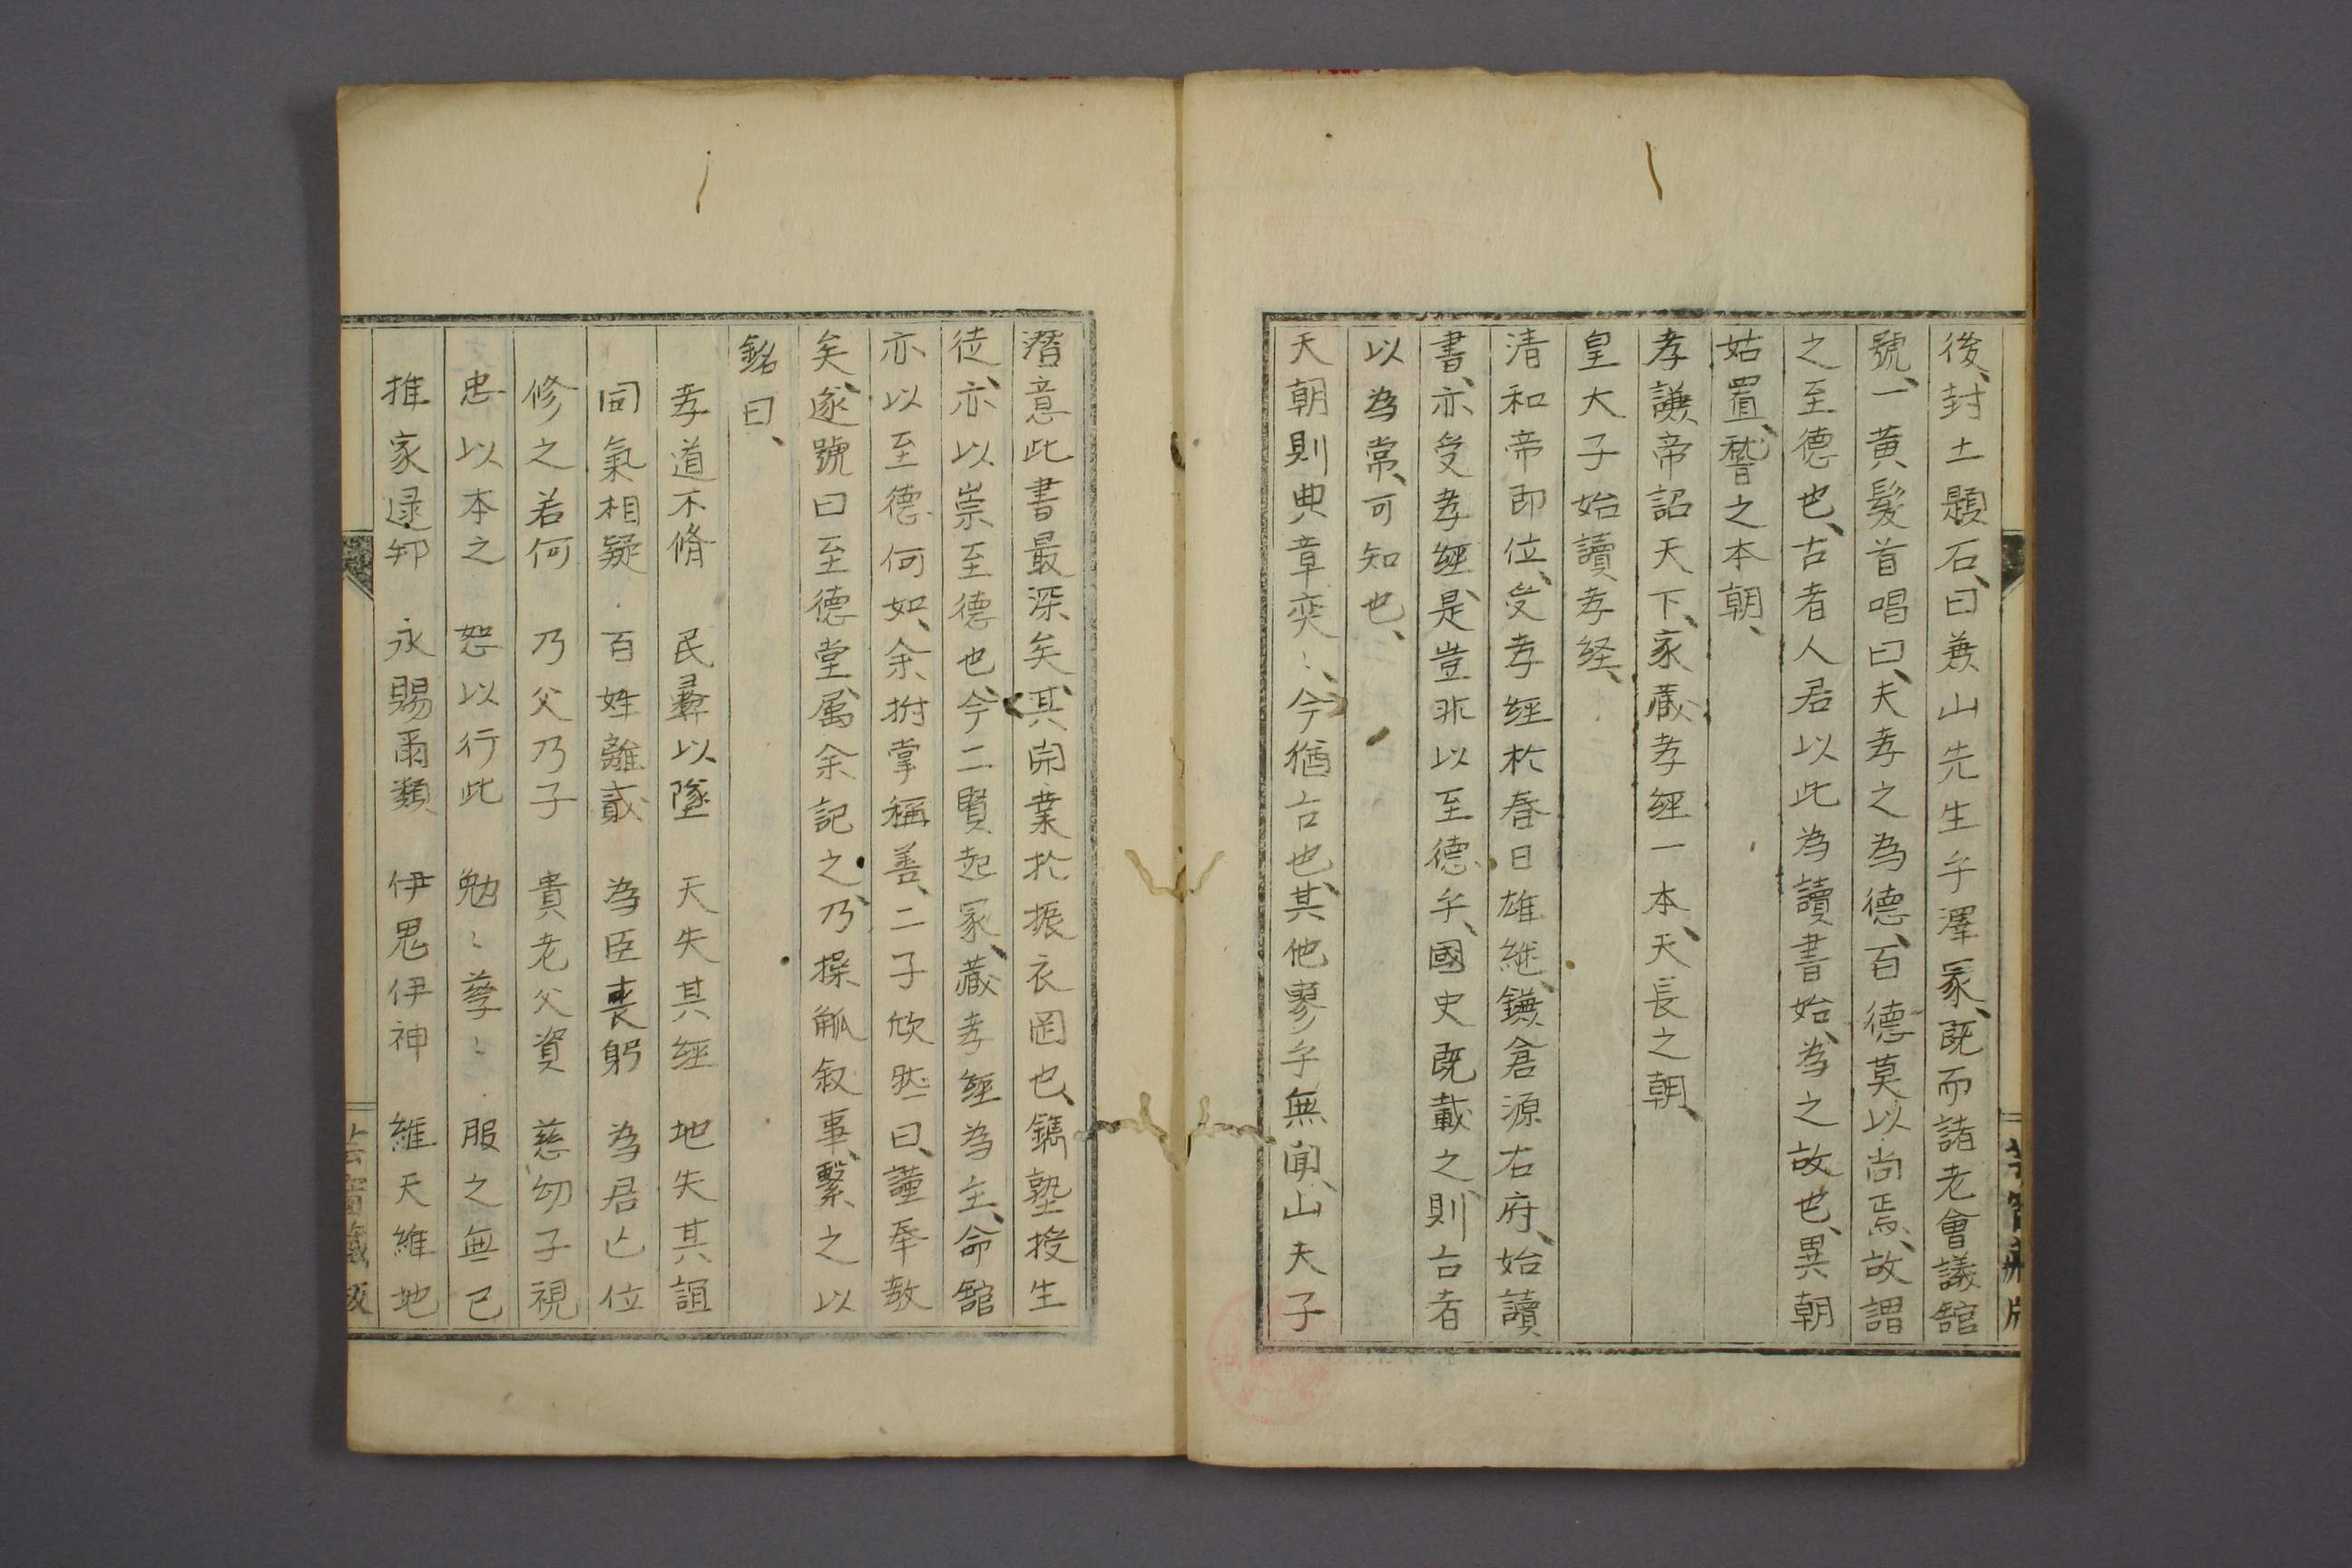 後、封土題石、曰兼山先生乎澤冢、既而諸老會議舘
號、一黄髮首唱曰、夫孝之為德、百德莫以尚焉、故謂
之至德也、古者人君以此為讀書始、為之故也、異朝
姑置、稽之本朝、
孝謙帝詔天下、家藏孝經一本、天長之朝、
皇大子始讀孝経、
清和帝即位、受孝經於春日雄継、鎌倉源右府、始讀
書、亦受孝經、是豈非以至德乎、國史既載之、則古者
以為常、可知也、
天朝則典章奕〻、今猶古也、其他寥乎無聞、山夫子
潛意此書最深矣、其開業於振衣岡也、鐫塾授生
徒、亦以崇至德也、今二賢起冢、藏孝經為主、命舘
亦以至德何如、余拊掌稱善、二子欣然曰、謹奉教
矣、遂號曰至德堂、属余記之、乃操觚叙事、繫之以
銘曰、
孝道不脩 民彝以墜 天失其經 地失其誼
同氣相疑 百姓離貳 為臣喪躬 為君亾位
修之若何 乃父乃子 貴老父資 慈幼子視
忠以本之 恕以行此 勉〻孳〻 服之無已
推家逯邦 永賜爾類 伊鬼伊神 維天維地
芸窗藏版